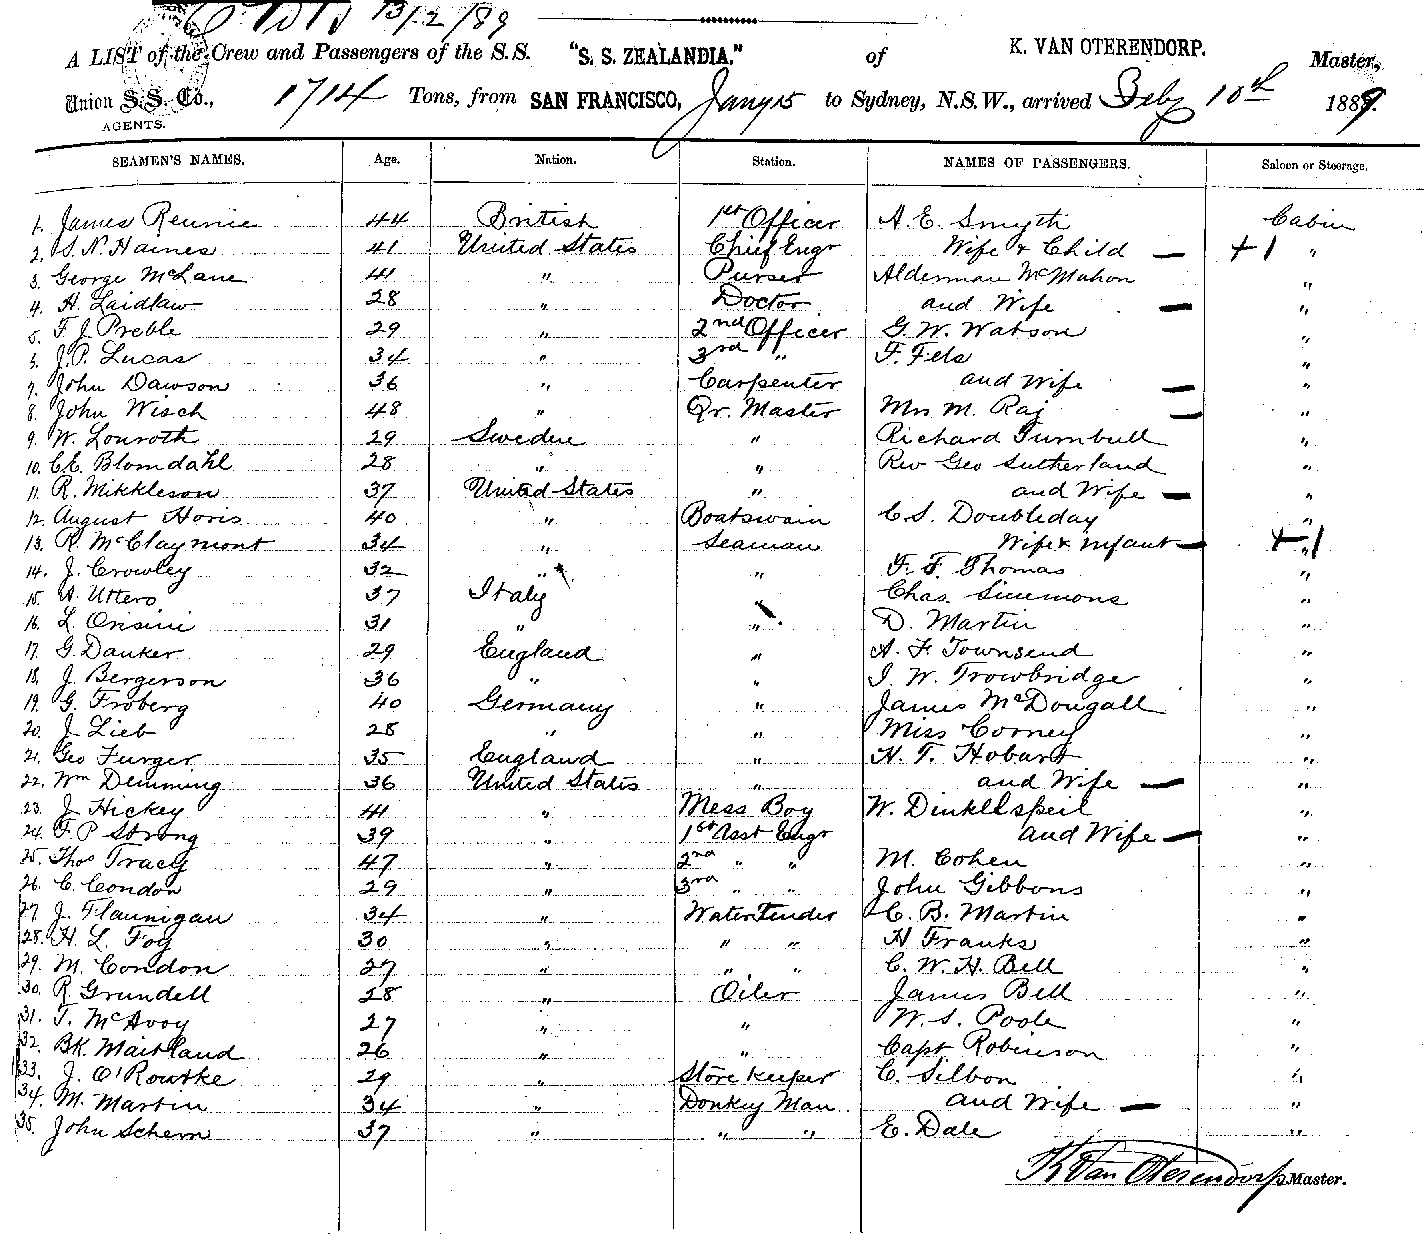 13/2/89
A LIST of the Crew and Passengers of the S.S. "S. S. ZEALANDIA." of K. VAN OTERENDORP. Master,
Union S.S. Co., 1714 Tons, from SAN FRANCISCO, Jany 15 to Sydney, N.S.W., arrived Feby 10th 1889.
AGENTS.
SEAMEN'S NAMES. Age. Nation. Station. NAMES OF PASSENGERS. Saloon or Steerage.
1. James Rennie 44 British 1st Officer A. E. Smyth Cabin
2. S. N. Haines 41 United States Chief Engr Wife & Child — +1 "
3. George McLane 41 " Purser Alderman McMahon "
4. H. Laidlaw 28 " Doctor and Wife — "
5. F. J. Preble 29 " 2nd Officer G. W. Watson "
J. P. Lucas 34 " 3rd " F. Fels "
7. John Dawson 36 " Carpenter and Wife — "
8. John Wisch 48 " Qr. Master Mrs M. Raj — "
9. W. Lonroth 29 Sweden " Richard Turnbull "
10. C.E. Blomdahl 28 " " Rev Geo Sutherland "
11. R. Mikkleson 37 United States " and Wife — "
12. August Horis 40 " Boatswain C. S. Doubleday "
13. R. McClaymont 34 " Seaman Wife & Infant — +1 "
14. J. Crowley 32 " " F. F. Thomas "
15. Utters 37 Italy " Chas. Simmons "
16. L. Orisini 31 " " D. Martin "
17. G. Danker 29 England " A. F. Townsend "
18. J. Bergerson 36 " " J. W. Trowbridge "
19. G. Froberg 40 Germany " James McDougall "
20. J. Lieb 28 " " Miss Corney "
21. Geo Furger 35 England " H. T. Hobart "
22. Wm Demming 36 United States " and Wife — "
23. J. Hickey 41 " Mess Boy W. Dinkelspeil "
24. F. P. Strong 39 " 1st Asst Engr and Wife — "
25. Thos Tracy 47 " 2nd " " M. Cohen "
26. C. Condon 29 " 3rd " " John Gibbons "
27. J. Flannigan 34 " Water Tender C. B. Martin "
28. H. L. Foy 30 " " " H Franks "
29. M. Condon 27 " " " C. W. H. Bell "
30. R Grundell 28 " Oiler James Bell "
31. T. McAvoy 27 " " W. S. Poole "
32. BK. Maitland 26 " " Capt Robinson "
33. J. O'Rourke 29 " Store Keeper C. Silbon "
34. M. Martin 34 " Donkey Man and Wife — "
35. John Schern 37 " " " E. Dale "
K Van Oterendorp Master.